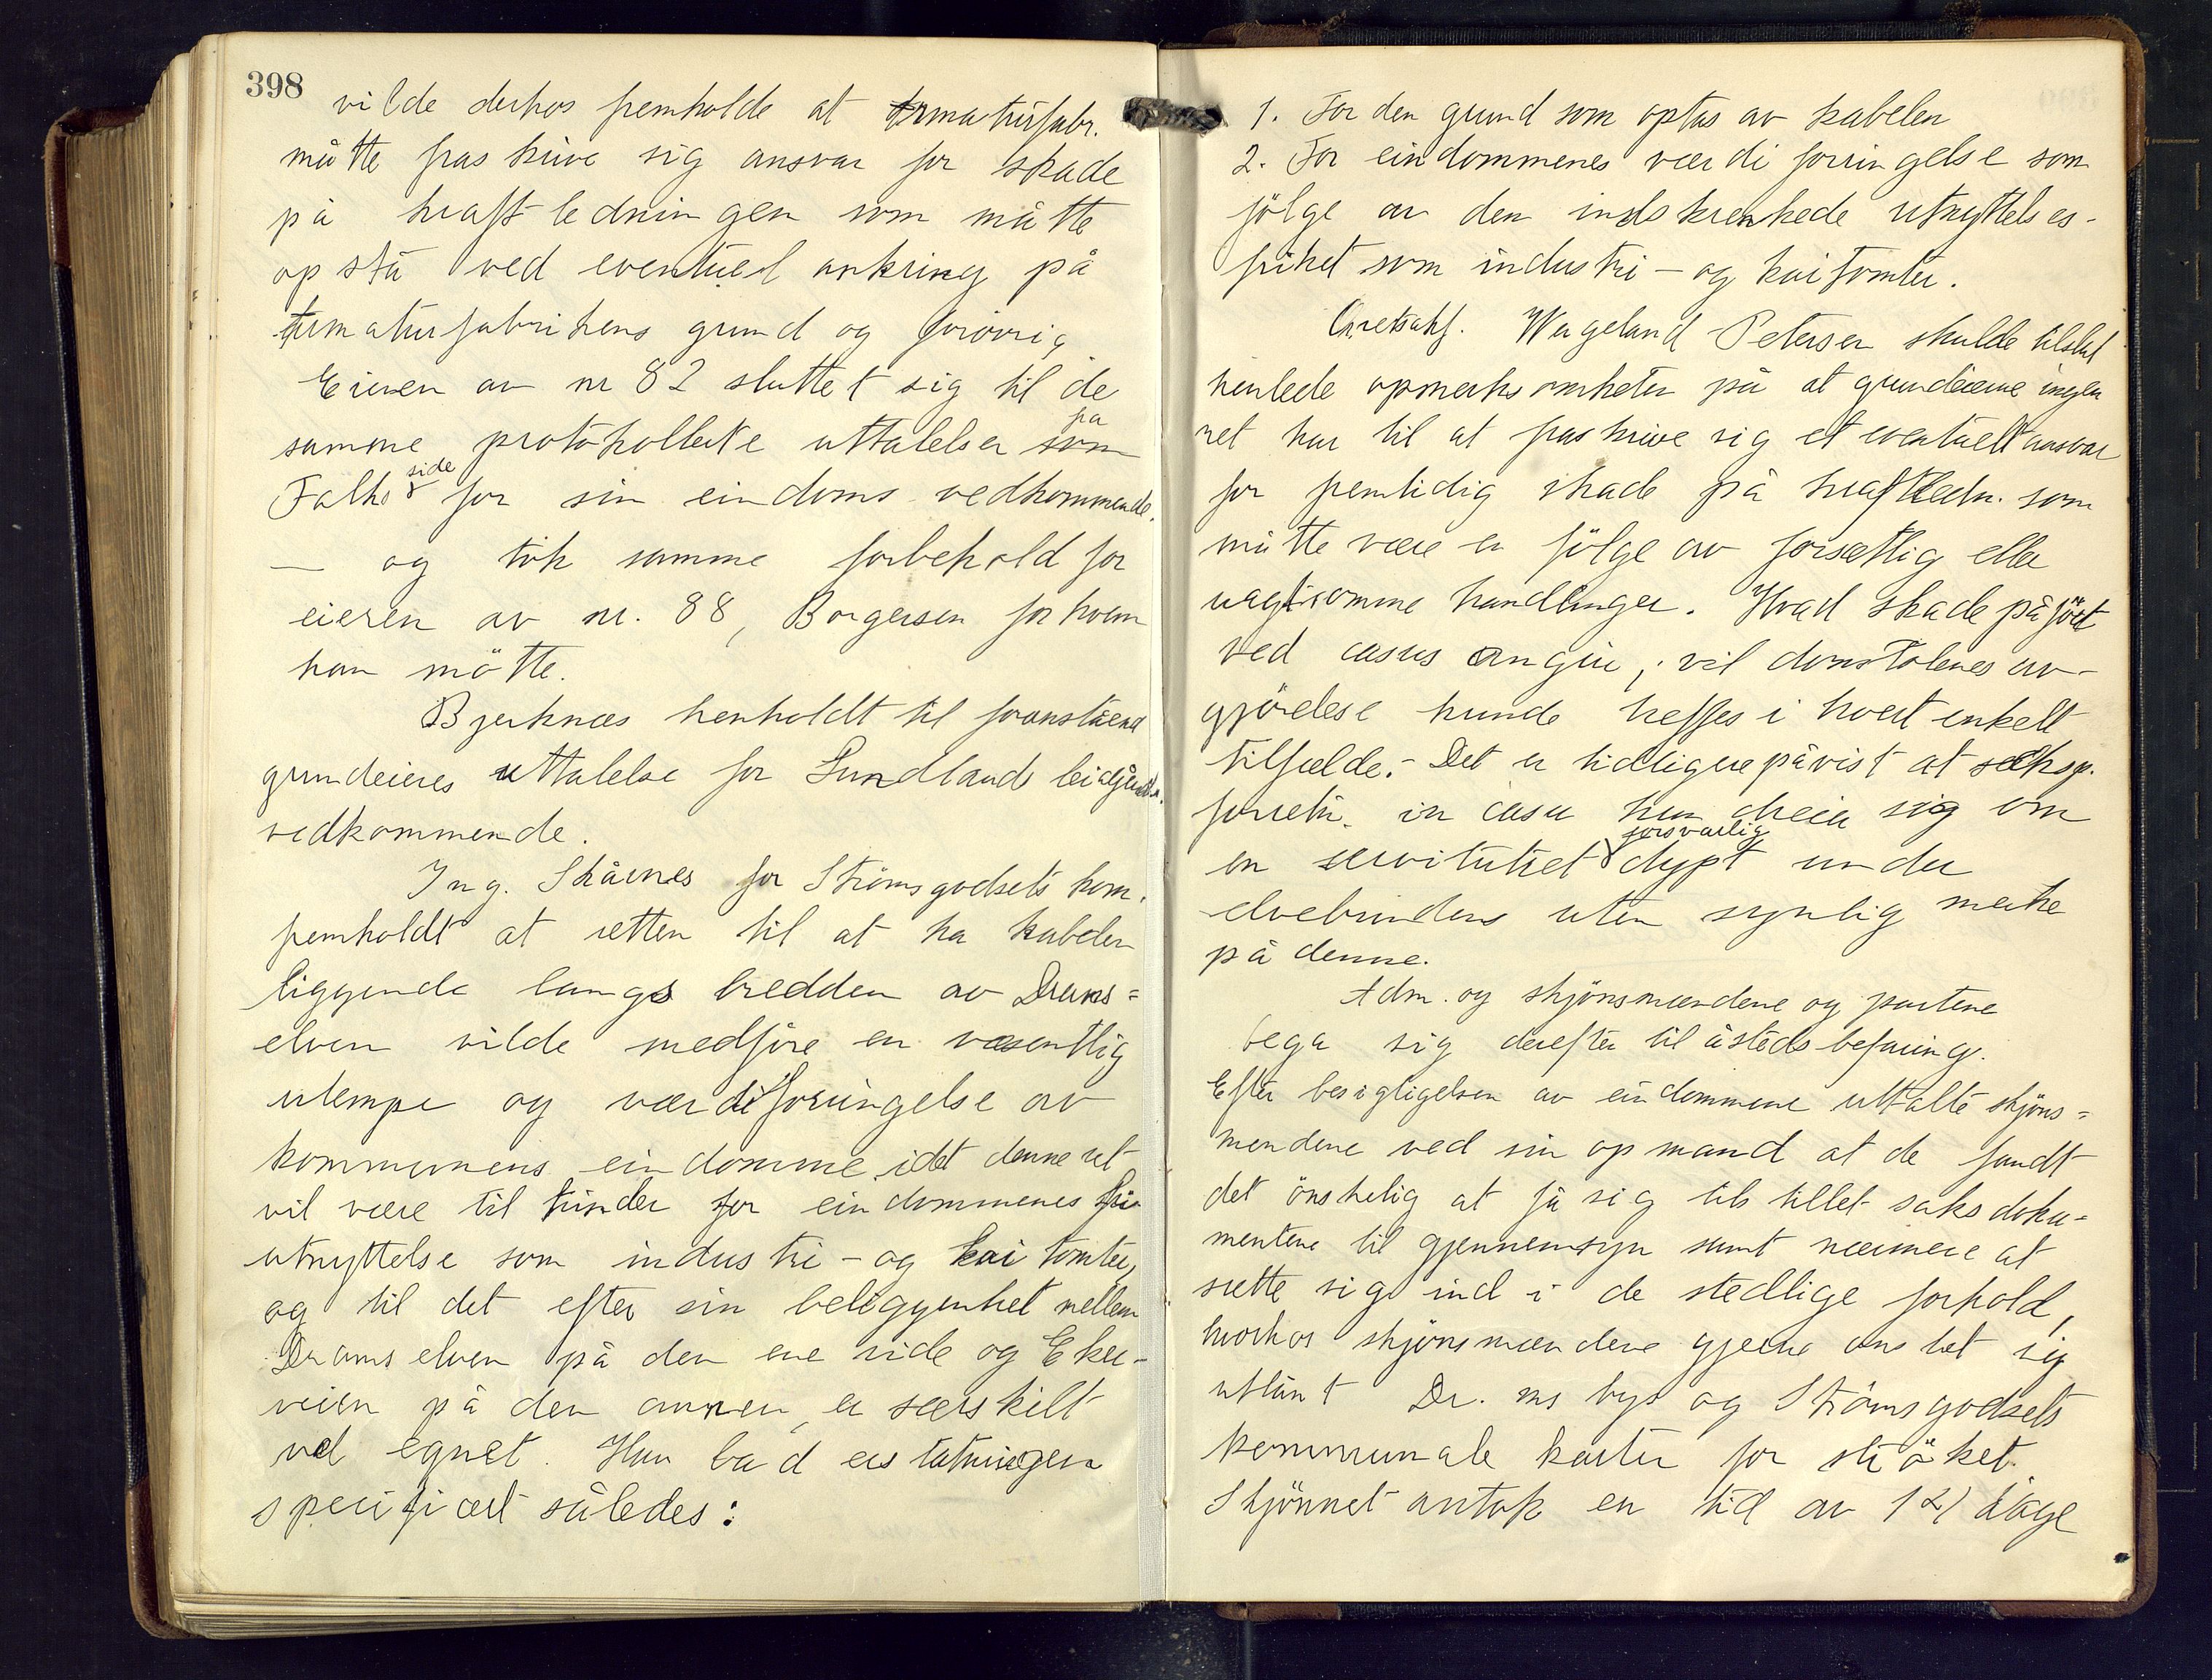 398
vilde derhos fremholde at armaturfabr.
måtte fraskrive sig ansvar for skade
på kraftledningen som måtte
opstå ved eventuel ankring på
armaturfabrikens grund og forøvrig
Eieren av nr 82 sluttet sig til de
samme protokollerte uttalelser som fra
Falks side for sin eindoms vedkommende.
— og tok samme forbehold for
eieren av nr. 88, Borgersen for hvem
han mötte.
Bjerknæs henholdt til foranstående
grundeieres uttalelse for Sundlands
vedkommende.
Ing. Skårnes for Strömsgodsets kom.
fremholdt at retten til at ha kabelen
liggende langs bredden av Drams=
elven vilde medføre en væsentlig
ulempe og værdiforringelse av
kommunens eindomme, idet denne ret
vil være til hinder for eindommenes fri
utnyttelse som industri- og kai tomter,
og til det efter sin beliggenhet mellem
Dramselven på den ene side og Eker-
veien på den annen, er særskilt
vel egnet. Han bad erstatningen
specificert således:
1. For den grund som optas av kabelen
2. For eindommenes værdiforringelse som
fölge av den indskrenkede utnyttelses-
frihet som industri- og kaitomter.
O.retsakf. Wegeland Petersen skulde tilslut
henlede opmerksomheten på at grundeierne ingen
ret har til at fraskrive sig et eventuelt ansvar
for fremtidig skade på kraftledn. som
måtte være en fölge av forsætlig eller
uagtsomme handlinger. Hvad skade påfört
ved casus angår, vil domstolenes av-
gjörelse kunde treffes i hvert enkelt
tilfælde.- Det er tidligere påvist at
forretn. in casu kun dreier sig om
en servitutret forsvarlig dypt under
elvebunden uten synlig merke
på denne.
Adm. og skjönsmændene og partene
bega sig derefter til åstedsbefaring.
Efter besigtigelsen av eindommene uttalte skjöns=
mendene ved sin opmand at de fandt
det önskelig at få sig tilstillet saksdoku-
mentene til gjennemsyn samt nærmere at
sætte sig ind i de stedlige forhold,
hvorhos skjönsmændene gjerne önsket sig
utlånt Dr.ms bys og Strömsgodsets
kommunale karter for ströket.
Skjönnet antok en tid av 14 dage